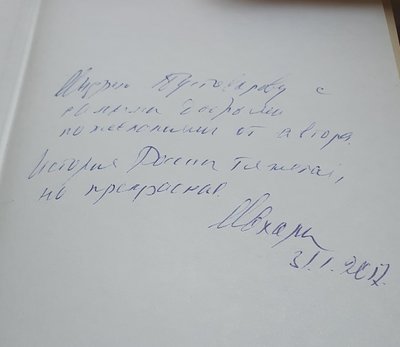 Андрею Пустоварову с
самыми добрыми
пожеланиями от автора.
История России тяжелая,
но прекрасная.
31.1.2017.